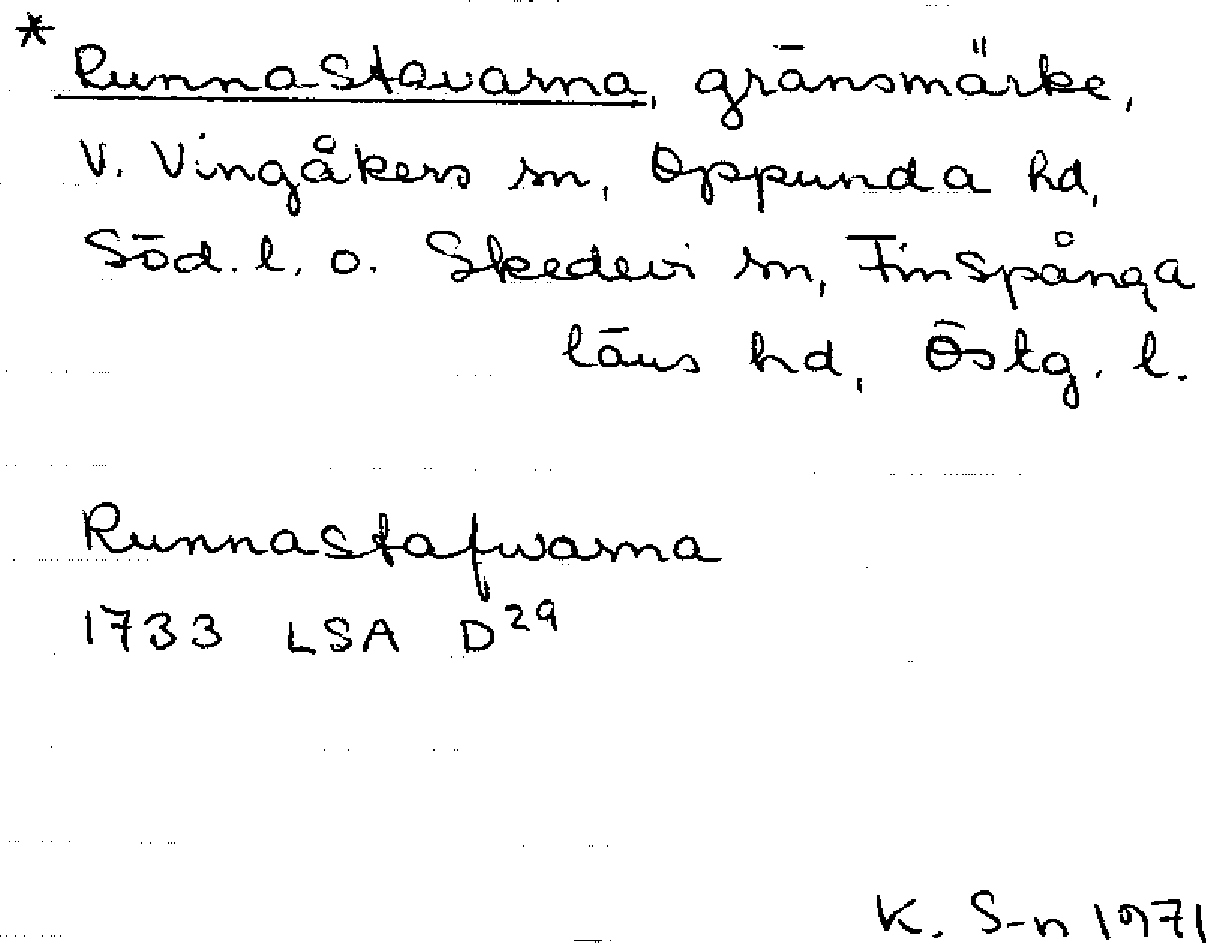 * Runnastavarna, gränsmärke,
V. Vingåkers sn, Oppunda hd,
Söd. l. o. Skedevi sn, Finspånga
läns hd, Östg. l.
Runnastafwarna
1733 LSA D29
K. S-n 1971